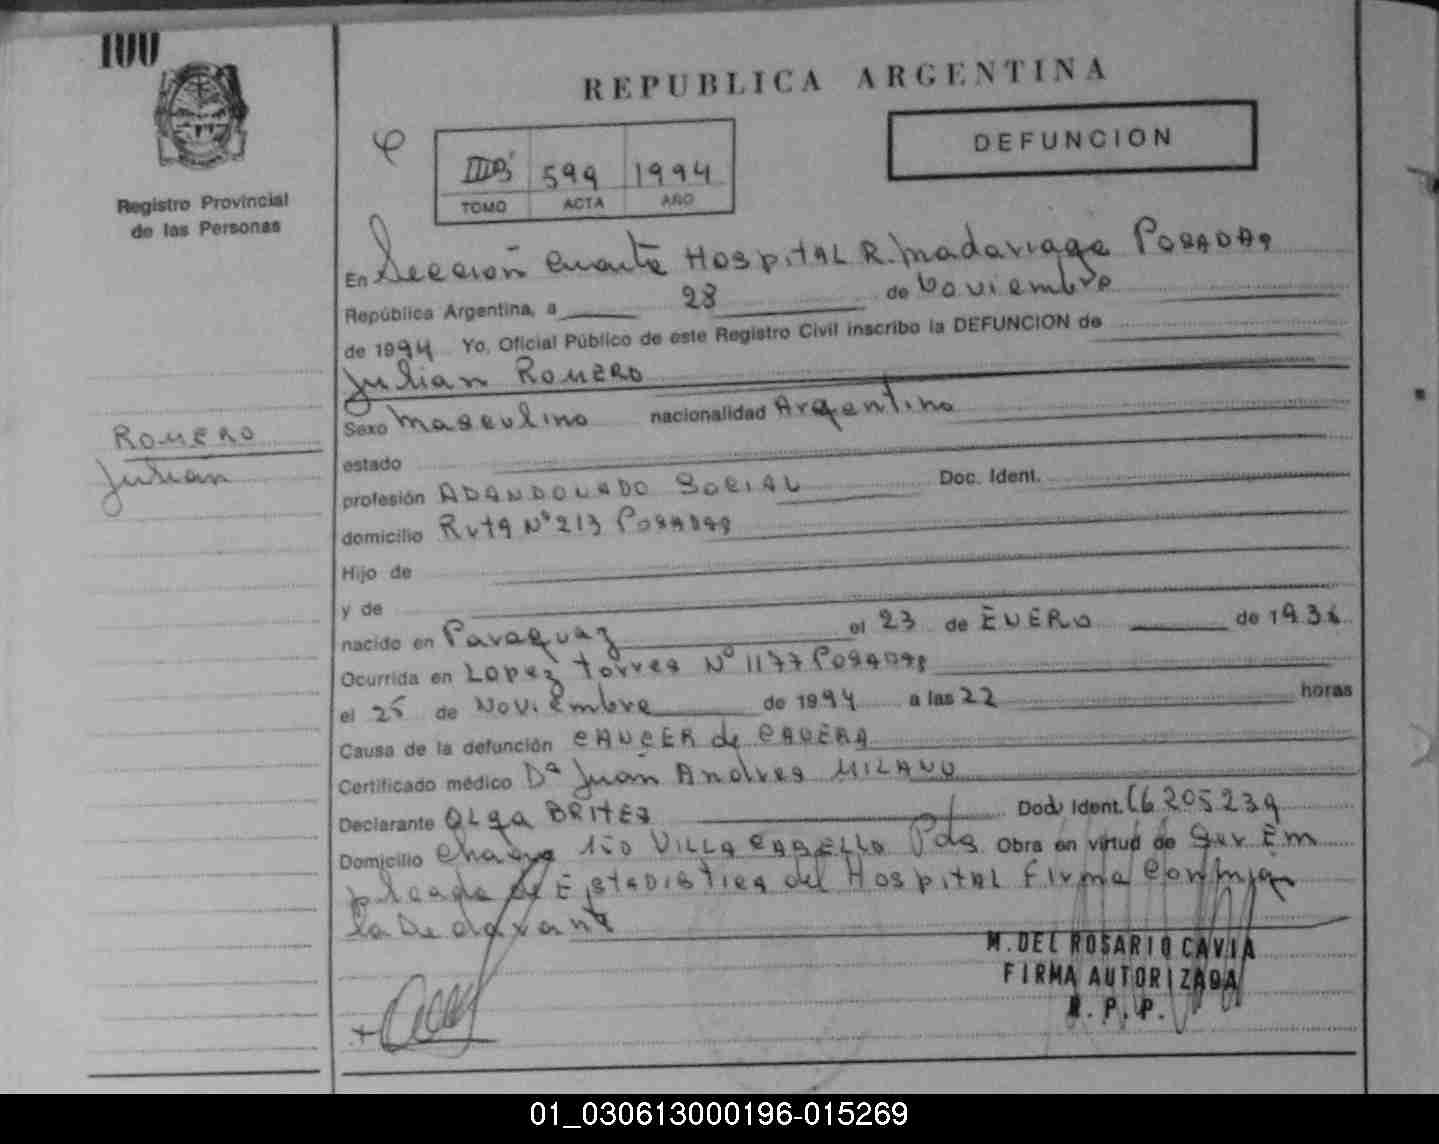 100
REPUBLICA ARGENTINA
DEFUNCION
599 1994
TOMO ACTA AÑO
Registro Provincial
de las Personas
En Sección Cuarta Hospital R. Madariaga Posadas
República Argentina, a 28 de Noviembre
de 1994 Yo, Oficial Público de este Registro Civil inscribo la DEFUNCION de
Julian Romero
Sexo Masculino nacionalidad Argentino
ROMERO
Julian
estado
profesión ABANDONADO SOCIAL Doc. Ident.
domicilio Ruta Nº 213 Posadas
Hijo de
y de
nacido en Paraguay el 23 de ENERO de 1936
Ocurrida en Lopez Torres Nº 1177 Posadas
el 25 de Noviembre de 1994 a las 22 horas
Causa de la defunción CANCER de
Certificado médico Juan Andres MILANO
Declarante Olga BRITEZ Doc. Ident. 16205239
Domicilio Chacra 150 VILLA CABELLO Pdas Obra en virtud de Ser Em
pleada de Estadistica del Hospital Firma Conmigo
la Declarante
M. DEL ROSARIO CAVIA
FIRMA AUTORIZADA
R. P. P.
01_030613000196-015269